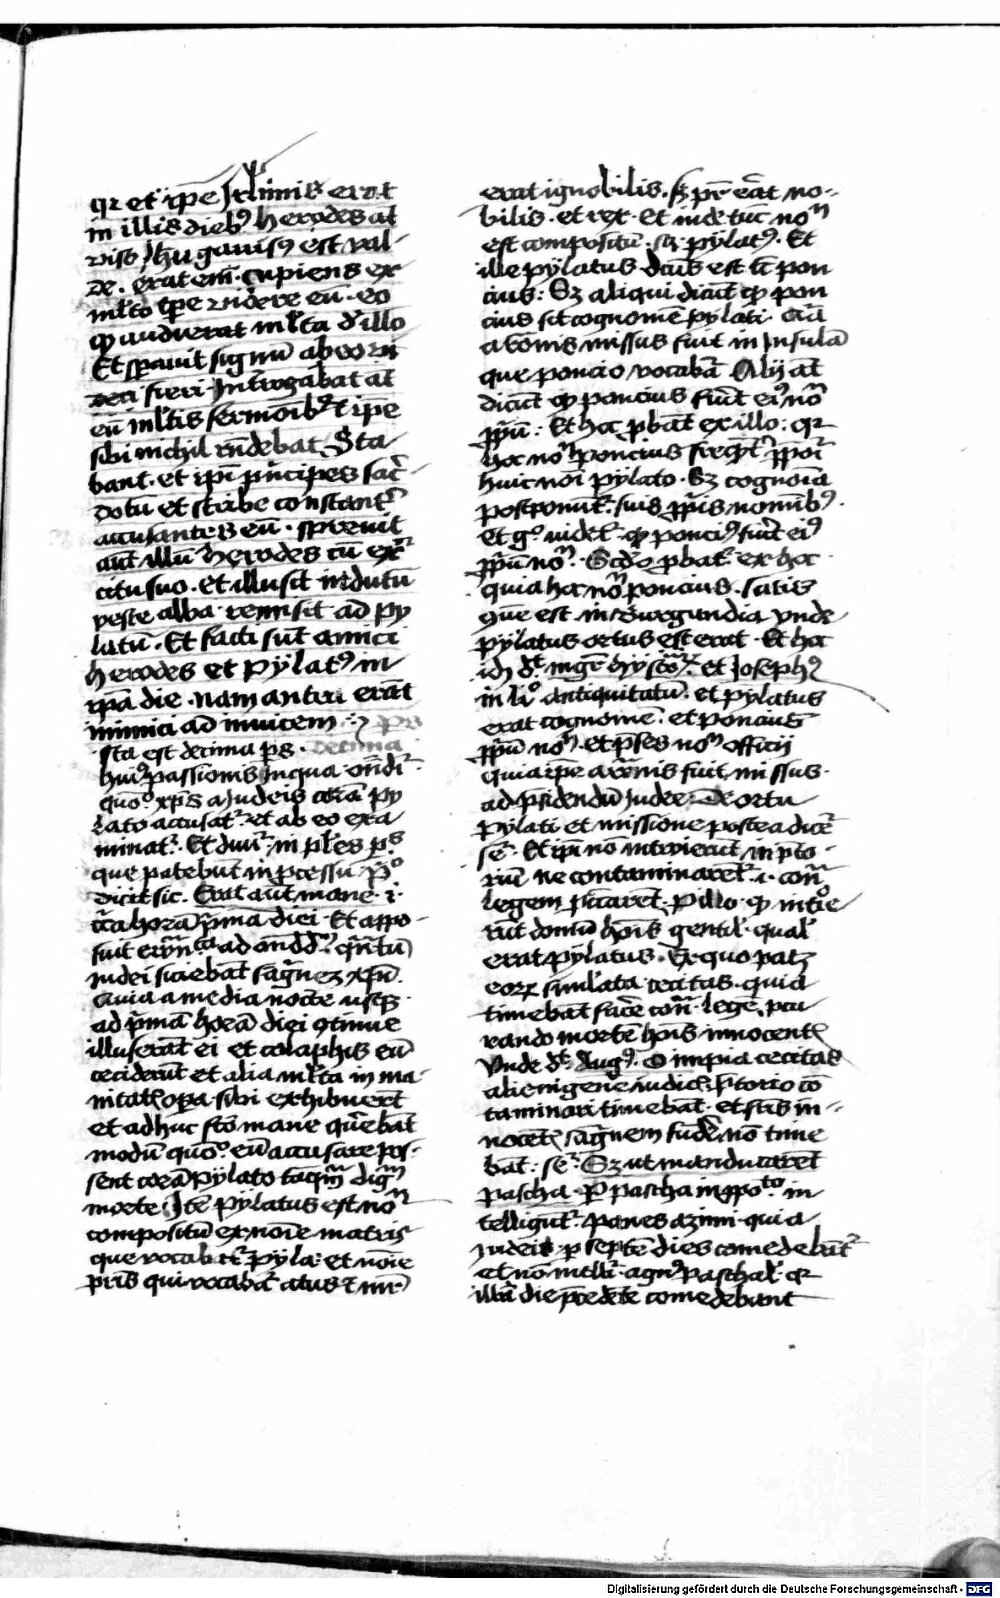 qr et ip̄e Jrl̄imis erat
in illis dieb⁹ herodes at̄
viso ihū gauisus est val-
de. erat em̄ cupiens ex
ml̄to tp̄e videre eū. eo
qp audierat ml̄ta d' illo
Et sp̄auit signū ab eo vi
deri fieri Int̄rogabat at̄
eū ml̄tis sermoīb⁹ t ip̄e
sibi nichil rn̄debat Sta
bant et ip̄i p̄ncipes sac̄
dotū et scribe constant̄
accusantes eū. spreuit
aut̄ illū herodes cū ex̄
citu suo. et illusit indutū
veste alba remisit ad py
latū. Et facti sūt amici
herodes et pylat⁹ in
ip̄a die. nam antea erāt
inimici ad inuicem
Sta est decima p̄s. Decima
hui⁹ passionis In qua on̄dit̄
quo° xp̄s a Judeis corā py
lato accusat̄ et ab eo exa
minat̄. Et diuit̄ in pl̄es p̄s
que patebūt in p̄cessu. p°
dicit sic. Erat aut̄ mane .i.
cc̄a horā p̄ma diei. Et appo-
suit ad on̄dd̄ qn̄tū
Judei siciebāt sāḡnez xp̄i
Quia a media nocte usq3
ad p̄mā horā diei 9tinue
illuserāt ei et colaphis eū
ceciderūt et alia ml̄ta in ma-
sibi exhibuer̄t
et adhuc fc̄o mane quēbāt
modū quo° eū accusare pos-
sent corā pylato tāq̄m diḡm
morte Itē pylatus est no͞m
compositū ex noīe matris
que vocabat̄ pyla. et noīe
pris qui vocabat̄ atus t mr̄
erat ignobilis. s3 pr̄ erāt no-
bilis. et rex. et inde tūc no͞m
est compositū. s3 pylat⁹. Et
ille pylatus dc̄us est t̄ pon
cius: S3 aliqui dicūt qp pon
cius sit cognomē pylati. Cū
a romis missus fuit in Insulā
que poncio vocabat̄. Alij at̄
dicūt qp poncius fuit ei⁹ no͞m
pp̄ū: Et hoc p̄bāt ex illo: qr
hoc no͞m poncius freq̄nt̄ p̄poīt̄
huic noī pylato. S3 cognoīa
postponūt̄ suis pp̄iis nomīb⁹.
Et g° videt̄ qp ponci⁹ fuit ei⁹
pp̄ū no͞m. Scd̄o p̄bat̄ ex hoc
quia hoc no͞m poncius. satis
que est in burgundia vnde
pylatus ortus est erat. Et hoc
id̄ dt̄ mgr̄ hystoīa4. et Joseph⁹
in li° antiquitatū. et pylatus
erat cognomē. et poncius
pp̄ū no͞m. et p̄ses no͞m officij
quia ip̄e a ro͞nis fuit missus.
ad p̄sidendū Judee. De ortu
pylati et missione postea dice
se. Et ip̄i nō introierūt in p̄to-
riū ne contaminarēt̄. i. con̄
legem p̄ illo. qp intrōe
rūt domū ho͞is gentil'. qual'
erat pylatus. Ex quo pat3
eo4 simulata cecitas. quia
timebāt face con̄ legē pcu
rando mortē ho͞is innocent̄
Vnde dt̄ Aug⁹. O impia cecitas
alienigene iudicis p̄torio cō
taminari timebāt. et fr̄is in-
nocent̄ sāḡnem fudē nō time
bāt: se. S3 ut manducarēt
pascha. P̄ pascha in ppo°to in
telligūt̄. panes azimi. quia
Judeis p septē dies comedebāt̄
et nō intell'i. agn⁹ paschal'. qr
illū die p̄cedēte comedebant
Digitalisierung gefördert durch die Deutsche Forschungsgemeinschaft - DFG